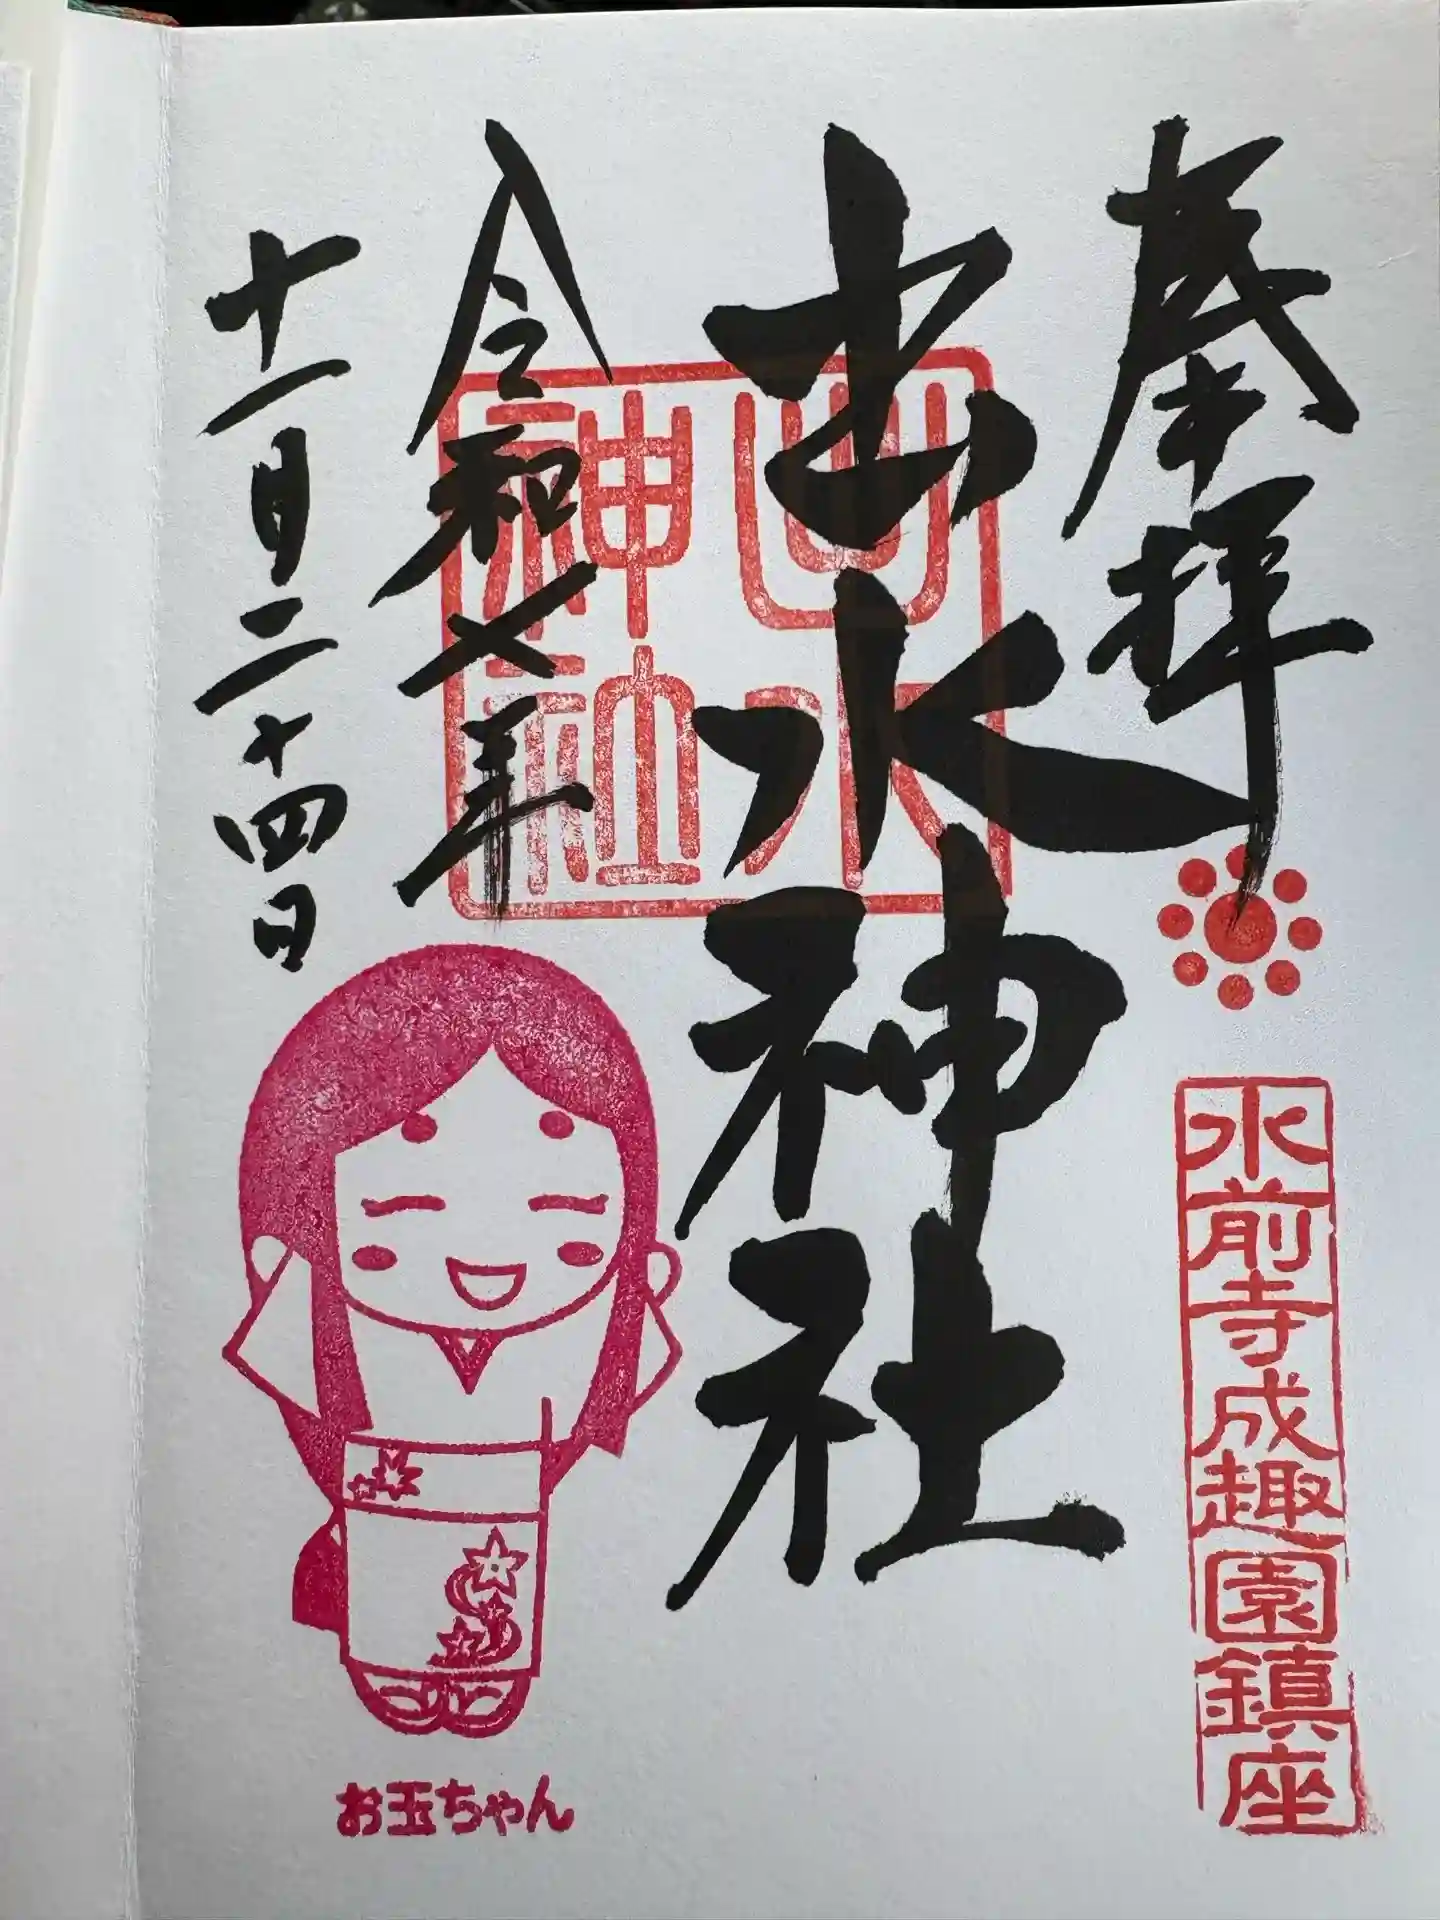 奉拝
水前寺成趣園鎮座
出水神社
出水神社
令和七年
十一月二十四日
お玉ちゃん